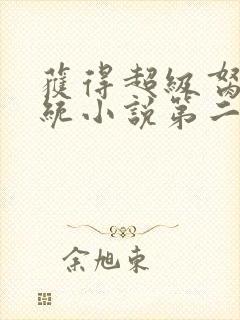 獲得超級
統小說第二
余旭東